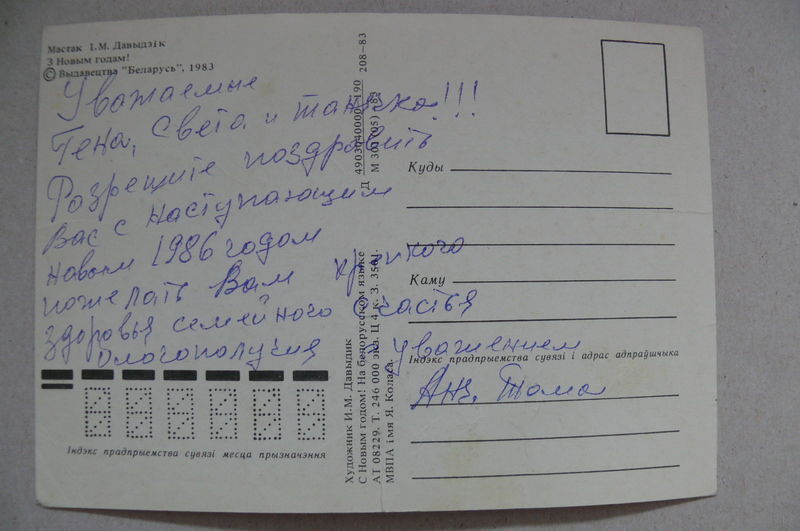 Мастак І.М. Давыдзік
З Новым годам!
© Выдавецтва "Беларусь", 1983
Уважаемые
Гена, Света и танечка!!!
Разрешите поздравить
Вас с наступающим
новым 1986 годом
пожелать Вам крепкого
здоровья семейного счастья
благополучия
с уважением
Тома
Куды
Каму
Індэкс прадпрыемства сувязі і адрас адпраўшчыка
Індэкс прадпрыемства сувязі месца прызначэння
Художник И.М. Давыдик
С Новым годом! На белорусском языке
АТ 08229. Т. 246 000 экз. Ц 4 к. З. 3561.
МВПА імя Я. Коласа.
Д 4903040000—190 208—83
М 301(05)—83